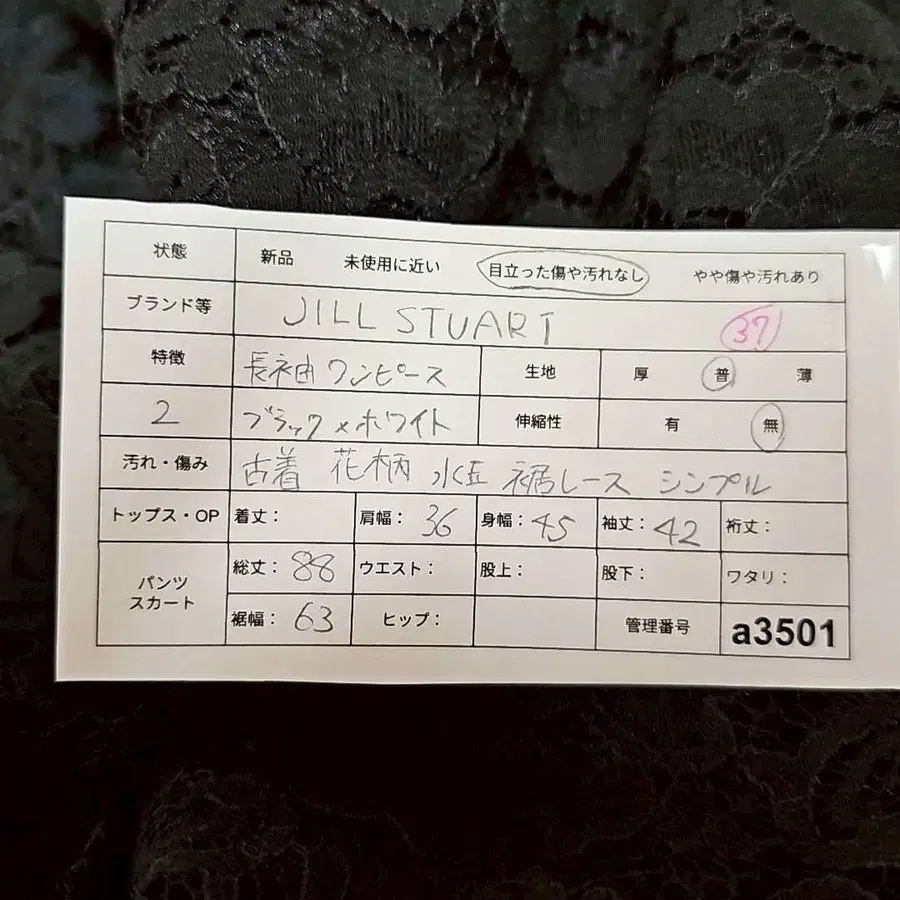 状態 新品 未使用に近い 目立った傷や汚れなし やや傷や汚れあり
ブランド等 JILL STUART 37
特徴 長袖ワンピース 生地 厚 普 薄
2 ブラック×ホワイト 伸縮性 有 無
汚れ・傷み 古着 花柄 水玉 裾レース シンプル
トップス・OP 着丈: 肩幅: 36 身幅: 45 袖丈: 42 裄丈:
パンツ スカート 総丈: 88 ウエスト: 股上: 股下: ワタリ:
裾幅: 63 ヒップ: 管理番号 a3501